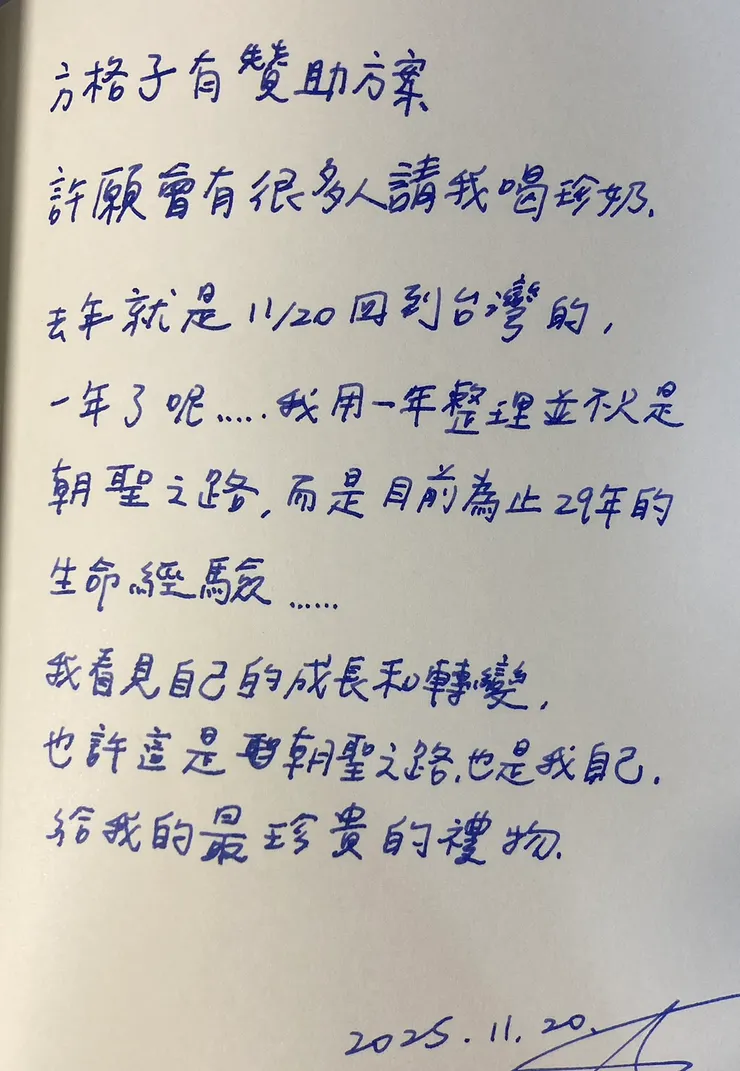 方格子有贊助方案
許願會有很多人請我喝珍奶.
去年就是11/20回到台灣的,
一年了呢.....我用一年整理並不只是
朝聖之路,而是目前為止29年的
生命經驗......
我看見自己的成長和轉變,
也許這是朝聖之路,也是我自己.
給我的最珍貴的禮物.
2025.11.20.